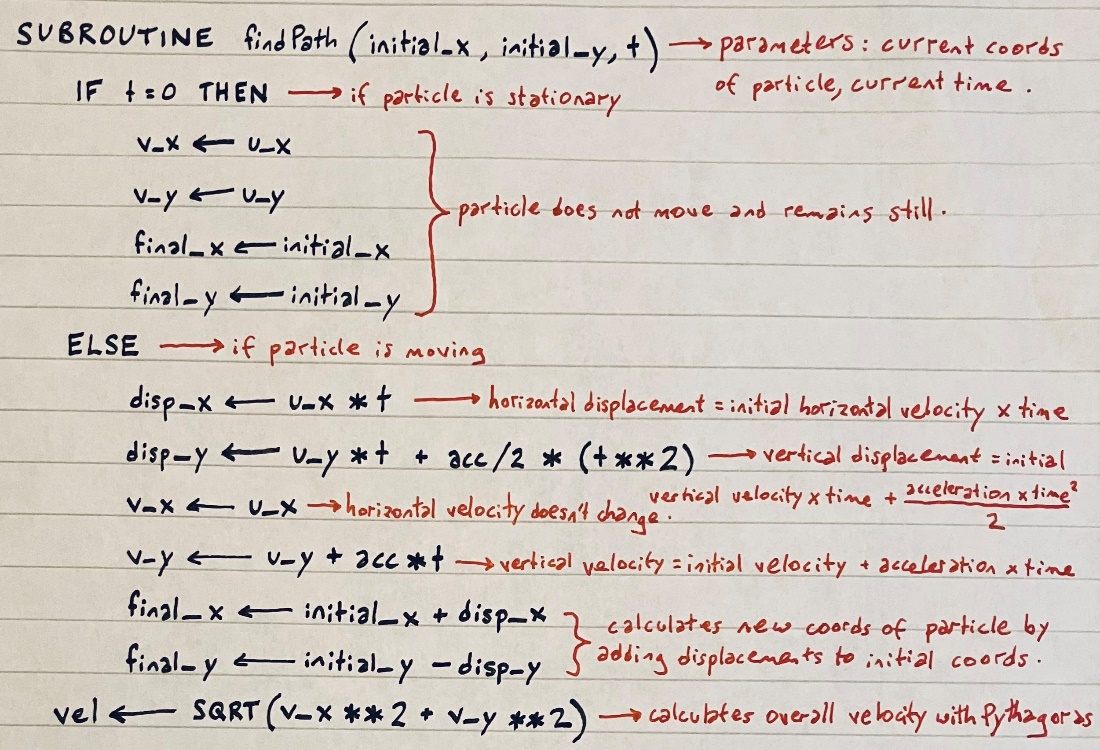 SUBROUTINE findPath (initial_x, initial_y, t) → parameters: current coords
of particle, current time.
IF t=0 THEN → if particle is stationary
v_x ← u_x
v_y ← u_y
particle does not move and remains still.
final_x ← initial_x
final_y ← initial_y
ELSE → if particle is moving
disp_x ← u_x * t → horizontal displacement = initial horizontal velocity x time
disp_y ← u_y * t + acc/2 * (t**2) → vertical displacement = initial
vertical velocity x time + acceleration x time² / 2
v_x ← u_x → horizontal velocity doesn't change.
v_y ← u_y + acc * t → vertical velocity = initial velocity + acceleration x time
final_x ← initial_x + disp_x
calculates new coords of particle by
final_y ← initial_y - disp_y
adding displacements to initial coords.
vel ← SQRT(v_x **2 + v_y **2) → calculates overall velocity with Pythagoras